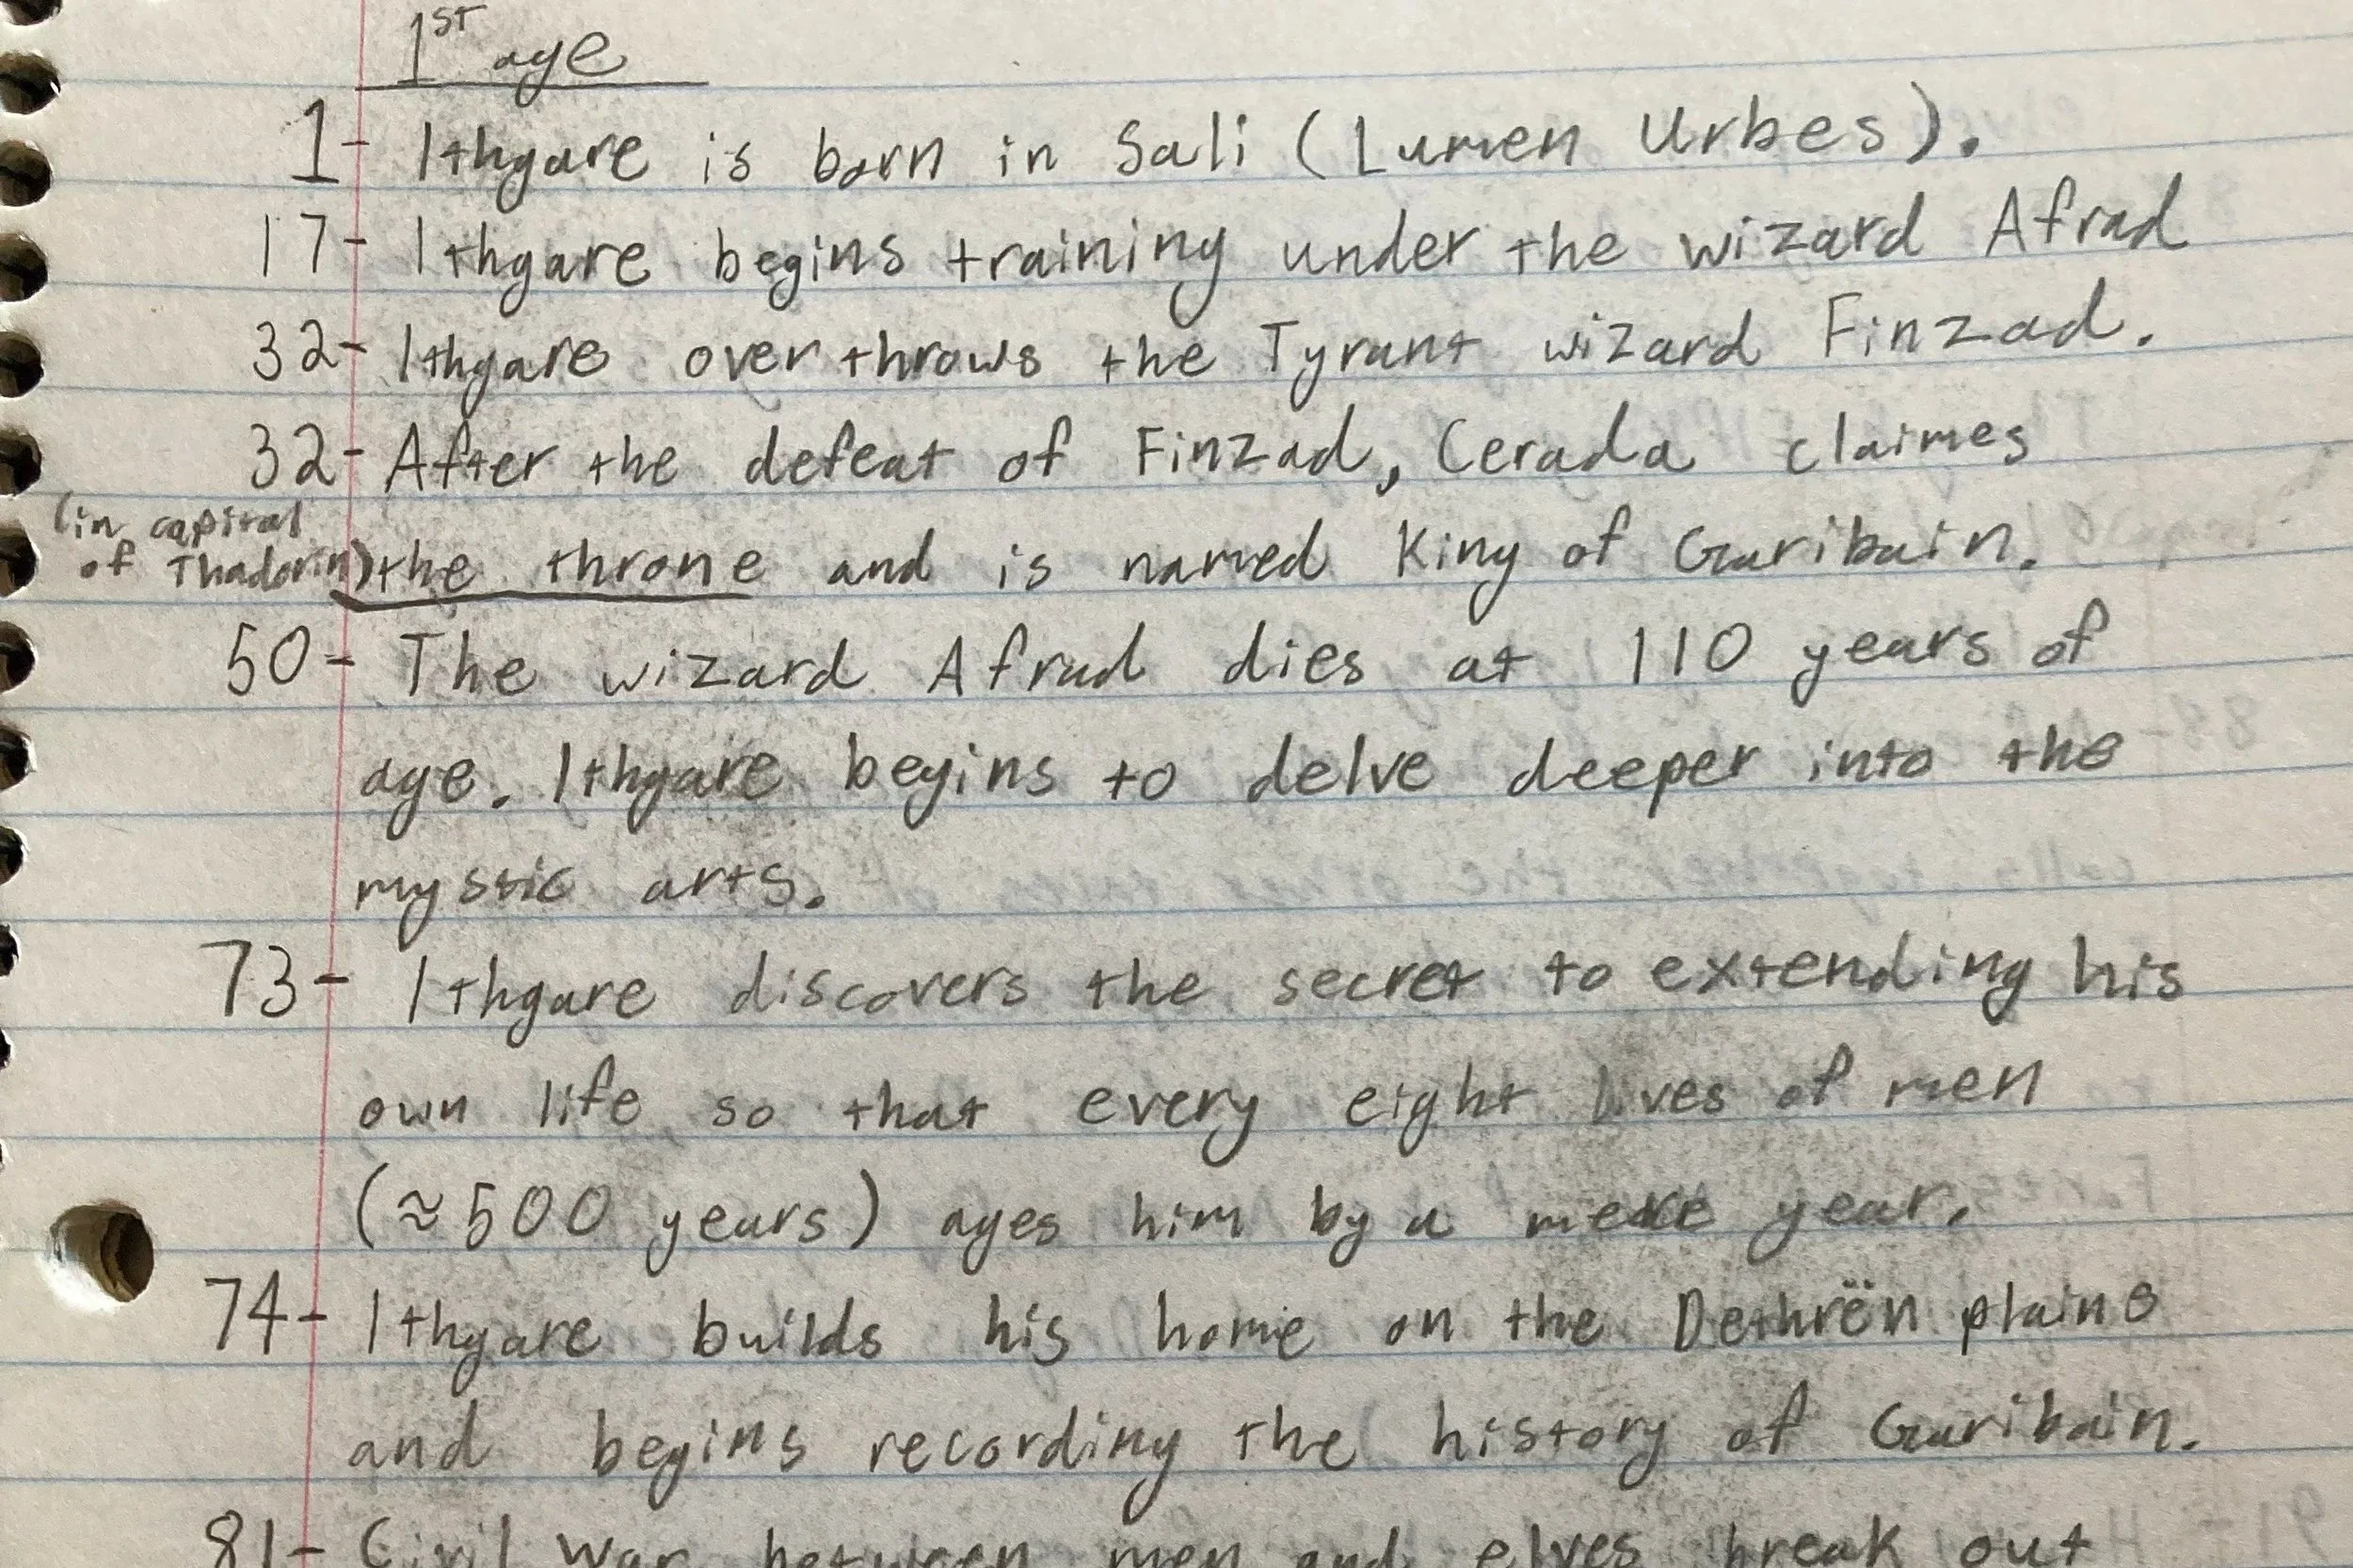 1ST age
1- Ithgare is born in Sali (Lumen Urbes).
17- Ithgare begins training under the wizard Afrad
32- Ithgare over throws the Tyrant wizard Finzad.
32- After the defeat of Finzad, Cerada claimes
(in capital
of Thadorin) the throne and is named King of Garibain.
50- The wizard Afrad dies at 110 years of
age. Ithgare begins to delve deeper into the
mystic arts.
73- Ithgare discovers the secret to extending his
own life so that every eight lives of men
(≈500 years) ages him by a mere year.
74- Ithgare builds his home on the Dethrën plains
and begins recording the history of Garibain.
81- Civil war between men and elves break out